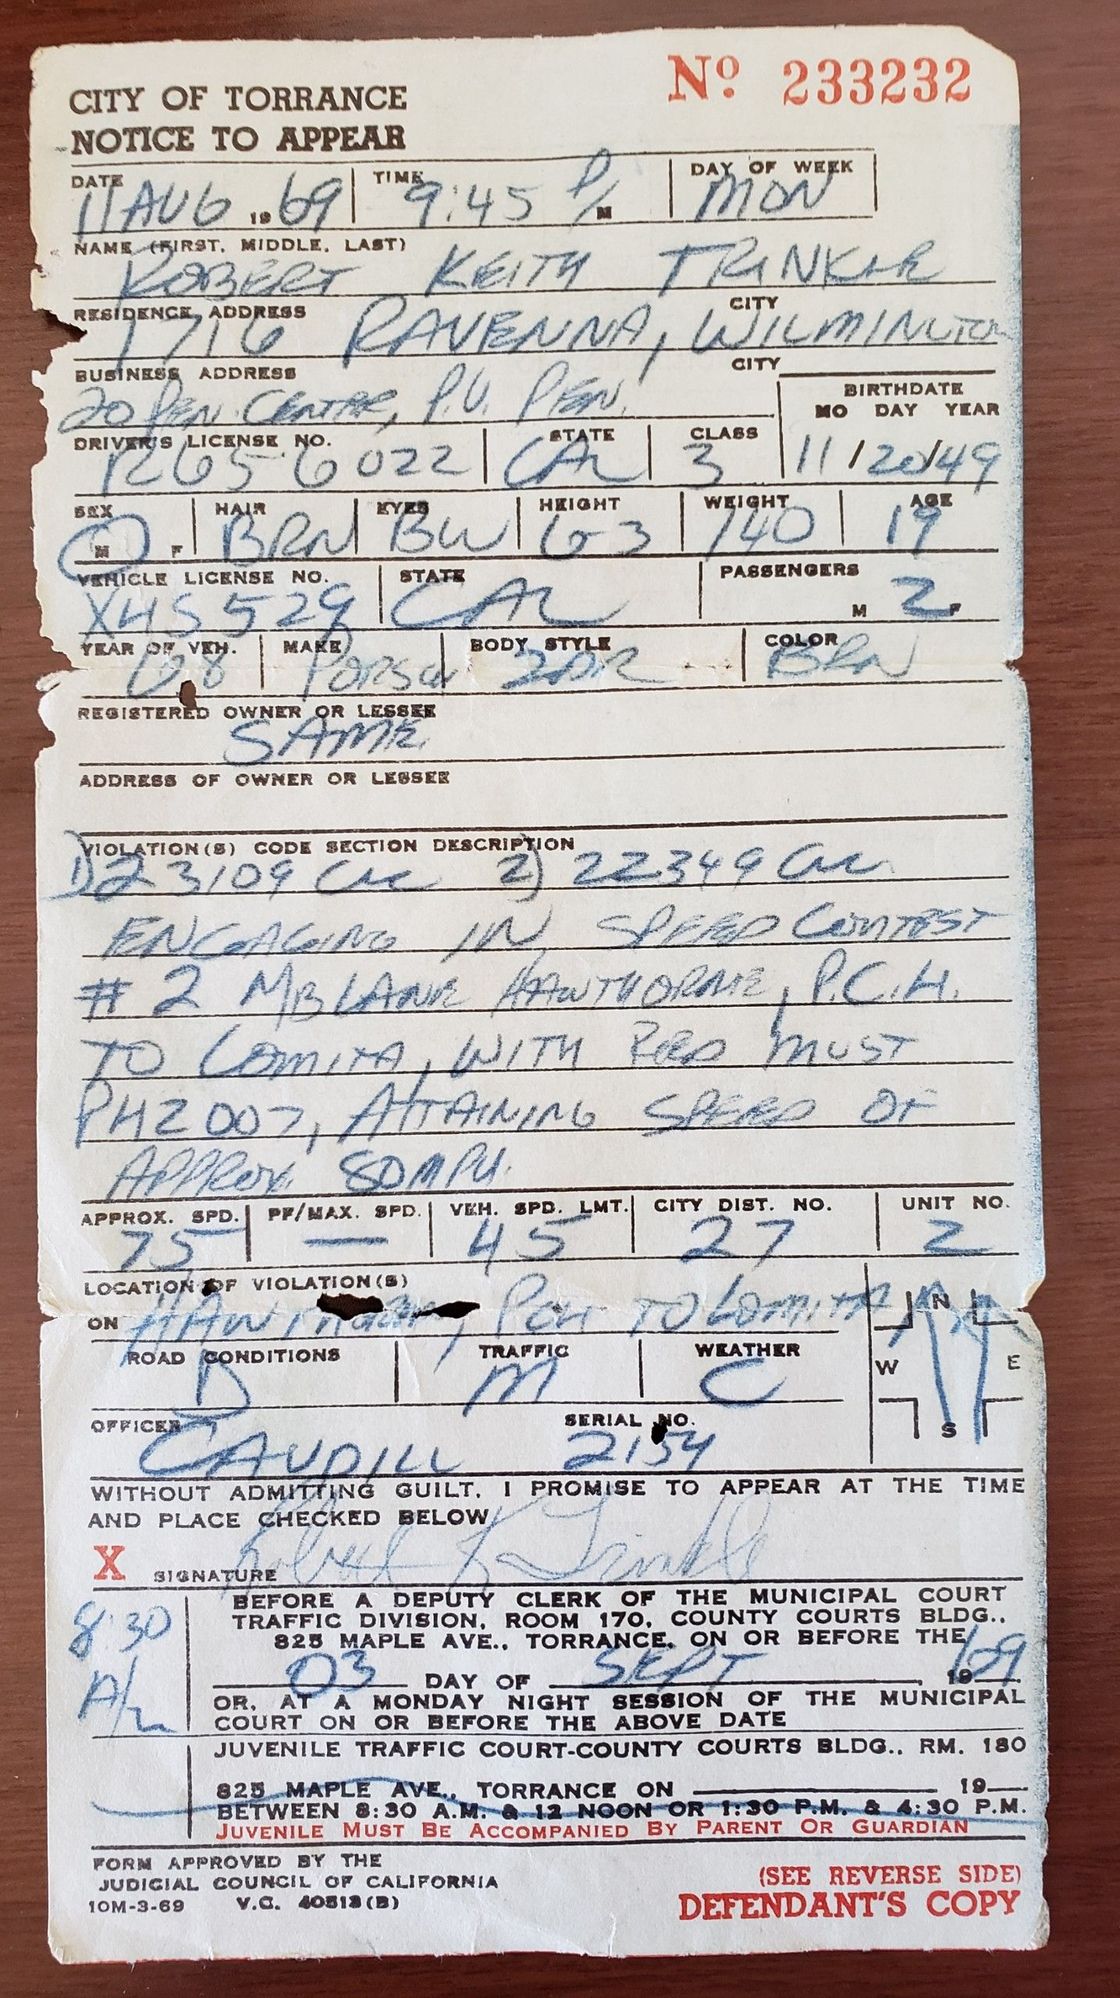 CITY OF TORRANCE
NOTICE TO APPEAR
Nº 233232
DATE TIME DAY OF WEEK
11 AUG 1969 9:45 P/M MON
NAME (FIRST, MIDDLE, LAST)
ROBERT KEITH TRINKLE
RESIDENCE ADDRESS CITY
1716 RAVENNA, WILMINGTON
BUSINESS ADDRESS CITY
20 PEN. CENTER, P.V. PEN.
BIRTHDATE
MO DAY YEAR
11/20/49
DRIVER'S LICENSE NO. STATE CLASS
6022 CAL 3
SEX HAIR EYES HEIGHT WEIGHT AGE
M F BRN BLU 6-3 140 19
VEHICLE LICENSE NO. STATE PASSENGERS
XHS 529 CAL M 2 F
YEAR OF VEH. MAKE BODY STYLE COLOR
68 PORSCH 2DR BRN
REGISTERED OWNER OR LESSEE
SAME
ADDRESS OF OWNER OR LESSEE
VIOLATION(S) CODE SECTION DESCRIPTION
1) 23109 CVC 2) 22349 CVC
ENGAGING IN SPEED CONTEST
# 2 NB LANE HAWTHORNE, P.C.H.
TO LOMITA, WITH RED MUST
PHZ 007, ATTAINING SPEED OF
APPROX. 80 MPH.
APPROX. SPD. PF/MAX. SPD. VEH. SPD. LMT. CITY DIST. NO. UNIT NO.
75 — 45 27 2
LOCATION OF VIOLATION(S)
ON HAWTHORNE, PCH TO LOMITA
N
W E
S
ROAD CONDITIONS TRAFFIC WEATHER
D M C
OFFICER SERIAL NO.
CAUDILL 2154
WITHOUT ADMITTING GUILT, I PROMISE TO APPEAR AT THE TIME
AND PLACE CHECKED BELOW
X SIGNATURE Robert K Trinkle
8:30
A/M
BEFORE A DEPUTY CLERK OF THE MUNICIPAL COURT
TRAFFIC DIVISION, ROOM 170, COUNTY COURTS BLDG.,
825 MAPLE AVE., TORRANCE, ON OR BEFORE THE
03 DAY OF SEPT 1969
OR, AT A MONDAY NIGHT SESSION OF THE MUNICIPAL
COURT ON OR BEFORE THE ABOVE DATE
JUVENILE TRAFFIC COURT-COUNTY COURTS BLDG., RM. 180
825 MAPLE AVE., TORRANCE ON 19
BETWEEN 8:30 A.M. & 12 NOON OR 1:30 P.M. & 4:30 P.M.
JUVENILE MUST BE ACCOMPANIED BY PARENT OR GUARDIAN
FORM APPROVED BY THE
JUDICIAL COUNCIL OF CALIFORNIA
10M-3-69 V.C. 40513(B)
(SEE REVERSE SIDE)
DEFENDANT'S COPY